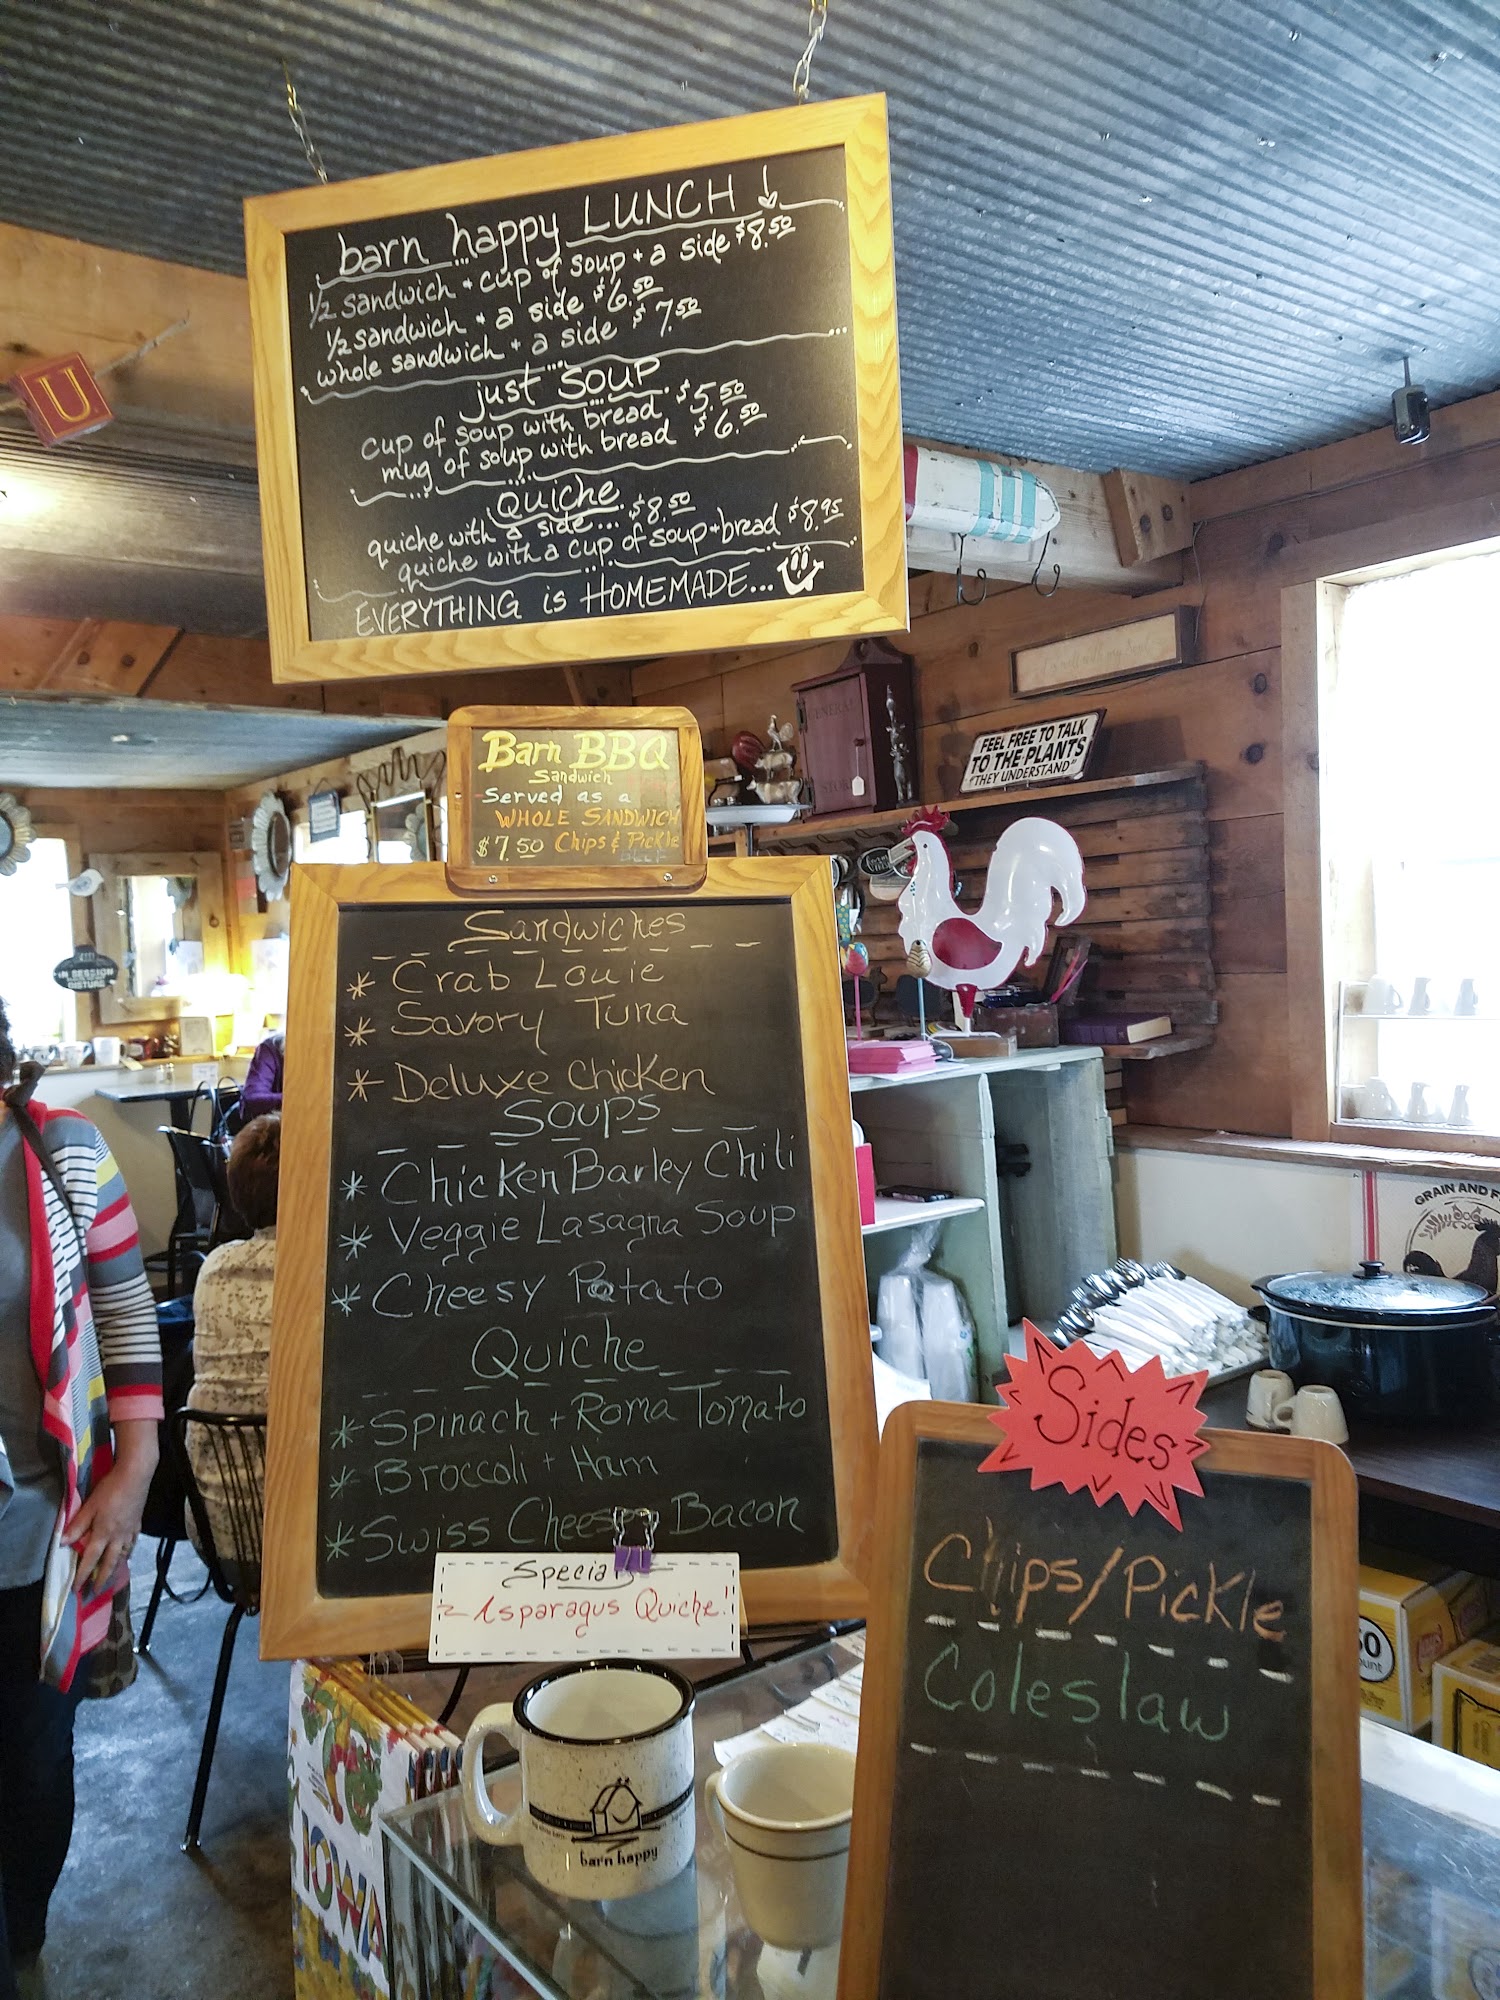 barn happy LUNCH
1/2 sandwich + cup of soup + a side $8.50
1/2 sandwich + a side $6.50
whole sandwich + a side $7.50
just SOUP
cup of soup with bread $5.50
mug of soup with bread $6.50
QUiCHE
quiche with a side... $8.50
quiche with a cup of soup + bread $8.95
EVERYTHING is HOMEMADE...
U
Barn BBQ
Sandwich
Served as a
WHOLE SANDWICH
$7.50 Chips & Pickle
FEEL FREE TO TALK
TO THE PLANTS
"THEY UNDERSTAND"
GENERAL
STORE
IN SESSION
DISTURB
Sandwiches
* Crab Louie
* Savory Tuna
* Deluxe Chicken
Soups
* Chicken Barley Chili
* Veggie Lasagna Soup
* Cheesy Potato
Quiche
* Spinach + Roma Tomato
* Broccoli + Ham
* Swiss Cheese Bacon
Special
~ Asparagus Quiche!!
GRAIN AND
Sides
Chips/Pickle
Coleslaw
barn happy
IOWA